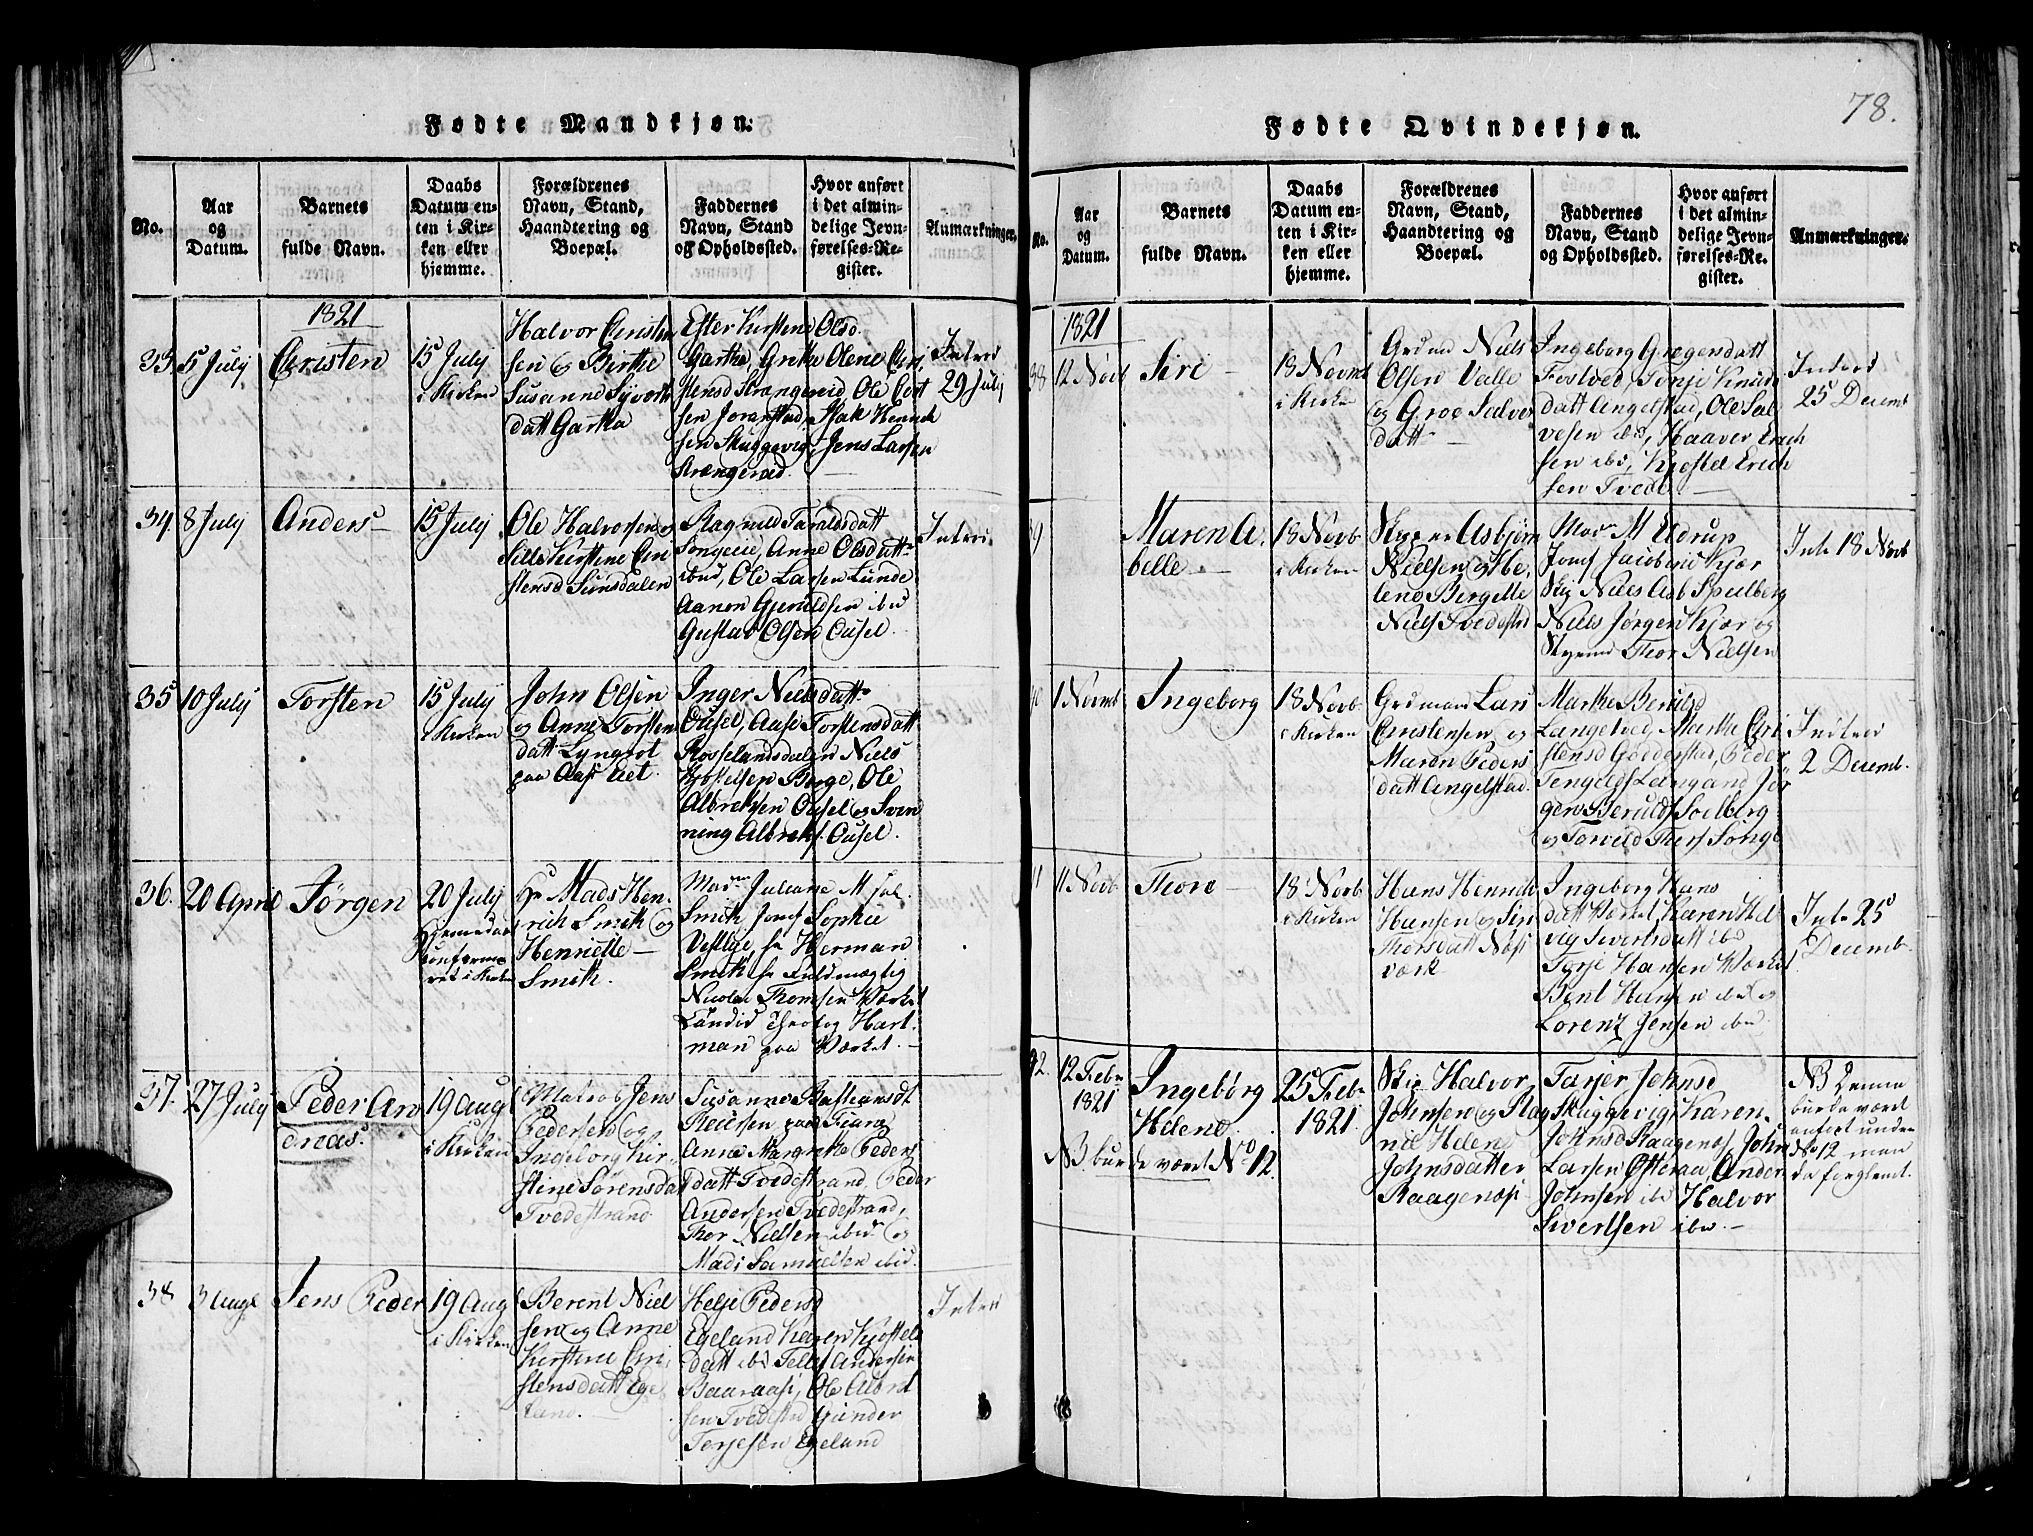 Fødte Mandkjøn.
No.
Aar
og
Datum.
Barnets
fulde Navn.
Daabs
Datum en-
ten i Kir-
ken eller
hjemme.
Forældrenes
Navn, Stand,
Haandtering og
Boepæl.
Faddernes
Navn, Stand
og Opholdssted.
Hvor anført
i det almin-
delige Jevn-
førelses-Re-
gister.
Anmærkninger.
1821
33. 5 July
Christen
15 July
i Kirken
Halvor Christen
sen og Birthe
Susanne Syvorts
datt Gartha
Ester Kirstine Olsd.
Gartha, Grethe Olene Chri
stensd Strangereid, Ole Cort
sen Joranstad, Isak Henrich
sen Skuggevig, Jens Larsen
Strængereid.
Introd
29 July
34. 8 July
Anders
15 July
Ole Halvorsen og
Sille Kirstine Chri
stensd Sunsdalen
Ragnild Taraldsdatt
Songeie, Anne Olsdatt
ibid, Ole Larsen Lunde
Aanon Gjeruldsen ibid
Gustav Olsen Ousel.
Introd.
35 10 July
Torsten
15 July
i Kirken
John Olsen
og Anne Torstens
datt Lyngrot
paa Aas Eiet.
Inger Nielsdatt
Ousel, Aase Torstensdatt
Rosselandsdalen Niels
Kjøstelsen Berge, Ole
Albretsen Ousel og Sven
ning Albrets. Ousel.
36. 20 April
Jørgen
20 July
Hjemedøbt
conferme
ret i Kirken
Hr Mads Hen-
rich Smith og
Henriette
Smith.
Mad. Juliane M
Smith Jomf Sophie
Vestlye, hr Herman
Smith, hr Fuldmægtig
Nicolai Thomsen Værket
Candid theolog Hart-
man paa Værket.
37. 27 July
Peder An
dreas.
19 Aug
i Kirken
Matros Jens
Pedersen og
Ingeborg Kir-
stine Sørensdatt
Tvedestrand
Susanne Bastiansdt
Reiersen paa Fiære
Anne Margrethe Peders
datt Tvedestrand, Peder
Andersen Tvedestrand,
Thor Nielsen ibid og
Mads Samuelsen ibid.
38 3 Aug
Jens Peder
19 Aug
i Kirken
Berent Niel
sen og Anne
Kirstine Chri
stensdatt Ege
land.
Helje Pedersd
Egeland Karen Kjøstels
datt ibd Tellef Andersen
Baaraasi, Ole Albret
sen Tvedestrd Gunder
Terjesen Egeland
Introd
78.
Fødte Qvindekjøn.
No.
Aar
og
Datum.
Barnets
fulde Navn.
Daabs
Datum en-
ten i Kir-
ken eller
hjemme.
Forældrenes
Navn, Stand,
Haandtering og
Boepæl.
Faddernes
Navn, Stand
og Opholdssted.
Hvor anført
i det almin-
delige Jevn-
førelses-Re-
gister.
Anmærkninger.
1821
38 12 Novb
Siri
18 Novmb
i Kirken
Grdm Niels
Olsen Valle
og Groe Salves
datt
Ingeborg Gregersdatt
Fostved, Tonje Knuds
datt Angelstad, Ole Sal
vesen ibid, Haaver Erich
sen ibd, Kjøstel Erich
sen Tvede
Introd
25 Decemb
39
Maren A.
belle
18 Novb
i Kirken
Skipper Asbjørn
Nielsen og He,
lene Bergette
Niels Tvedestrd
Mad M Udrup
Jomf Jacobine Kjær
Skip Niels Aab Spulberg
Niels Jørgen Kjær og
Thor Nielsen
Int. 18 Novb
40 1 Novmb
Ingeborg
18 Novb
i Kirken
Grdmand Lars
Christensen og
Maren Peders
datt Angelstad.
Marthe Berulsd
Langetved, Marthe Chri
stensd Goderstad, Peder
Tengelsf Langand Jør
gen Beruldf Soelberg
og Torvild Thors Songe
Indtrod
2 Decemb.
41 11 Novb
Thore
18 Novb
i Kirken
Hans Henrich
Hansen og Siri
Thorsdatt Næs
værk
Ingeborg Hans
datt Værket, Karen Hel
vig Sivertsdatt ibd
Terje Hansen Værket
Bent Hansen ibid og
Lorentz Jensen ibid
Int. 25
Decemb.
42. 12 Febr
1821
Ingebørg
Helene.
NB burde været No 12.
25 Febr
1821.
Skip Halvor
Johnsen og Rag
nil Helene
Johnsdatter
Raagenæs
Tarjer Johnsd
Skuggevig, Karen
Johnsd Raagenæs, John
Larsen Osteraa Ander
Johnsen ibd Halvor
Sivertsen ibd.
NB Denne
burde været
anført under
No 12 men
da forglemt.